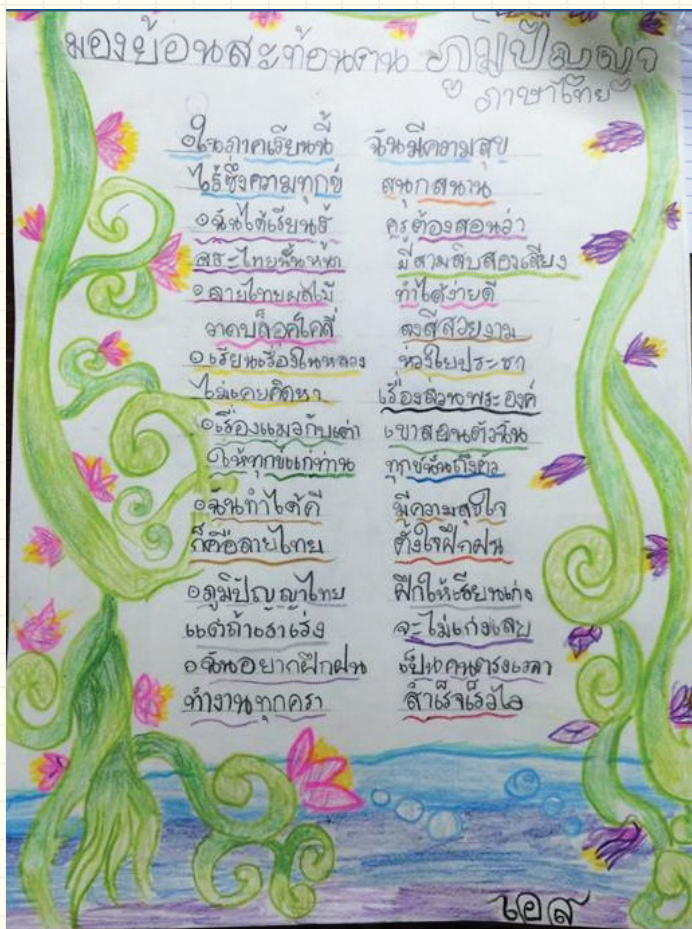 มองย้อนสะท้อนงาน ภูมิปัญญา
ภาษาไทย
๐ในภาคเรียนนี้ ฉันมีความสุข
ไร้ซึ่งความทุกข์ สนุกสนาน
๐ฉันได้เรียนรู้ ครูต้องสอนว่า
สระไทยพื้นหน้า มีสามสิบสองเสียง
๐ลายไทยผลไม้ ทำได้ง่ายดี
วาดบล็อคใคสี่ ลงสีสวยงาม
๐เรียนเรื่องในหลวง ห่วงใยประชา
ไม่เคยคิดหา เรื่องส่วนพระองค์
๐เรื่องแมวกับเต่า เขาสอนตัวฉัน
ให้ทุกข์แก่ท่าน ทุกข์นั้นถึงตัว
๐ฉันทำได้ดี มีความสุขใจ
ก็คือลายไทย ตั้งใจฝึกฝน
๐ภูมิปัญญาไทย ฝึกให้เรียนเก่ง
แต่ถ้าเราเร่ง จะไม่เก่งเลย
๐ฉันอยากฝึกฝน เป็นคนตรงเวลา
ทำงานทุกครา สำเร็จเร็วไว
เอส